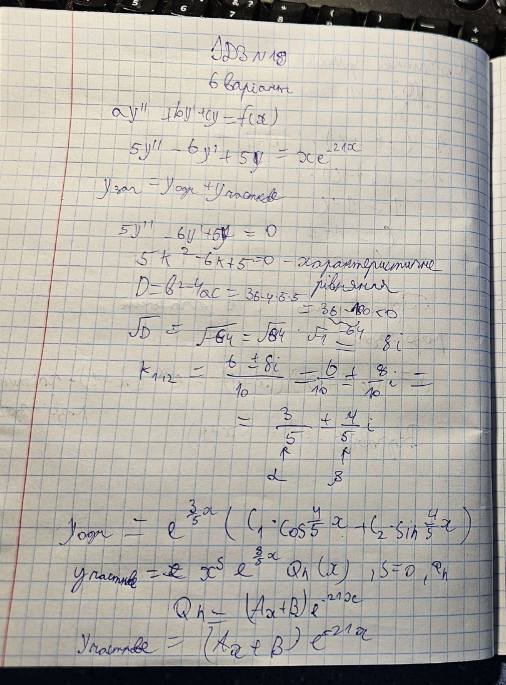 ІДЗ №18
6 варіант
ay'' + by' + cy = f(x)
5y'' - 6y' + 5y = xe^{-21x}
y заг = y одн + y часткове
5y'' - 6y' + 5y = 0
5k² - 6k + 5 = 0 - характеристичне
рівняння
D = b² - 4ac = 36 - 4·5·5
= 36 - 100 < 0
-64
√D = √-64 = √64 · √-1 = 8i
k₁,₂ = (6 ± 8i)/10 = 6/10 ± 8/10 i =
= 3/5 ± 4/5 i
α β
y одн = e^{3/5 x} (C₁ · cos 4/5 x + C₂ · sin 4/5 x)
y часткове = x^s e^{3/5 x} Qn(x), s=0, Qn
Qn = (Ax+B) e^{-21x}
y часткове = (Ax+B) e^{-21x}